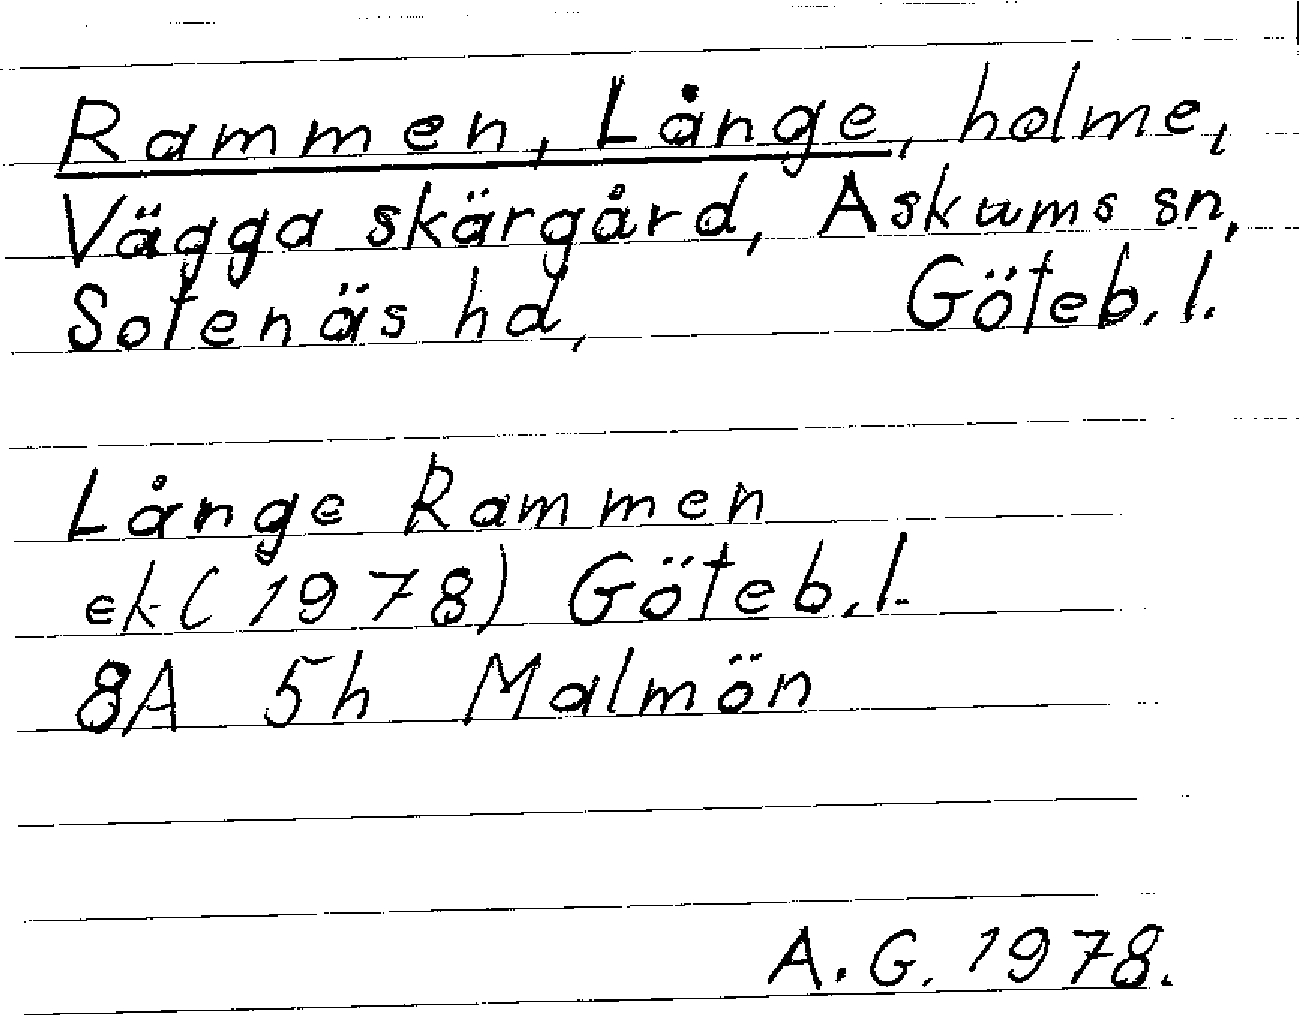 Rammen, Långe, holme,
Vägga skärgård, Askums sn,
Sotenäs hd, Göteb. l.
Långe Rammen
ek (1978) Göteb. l.
8A 5h Malmön
A. G. 1978.